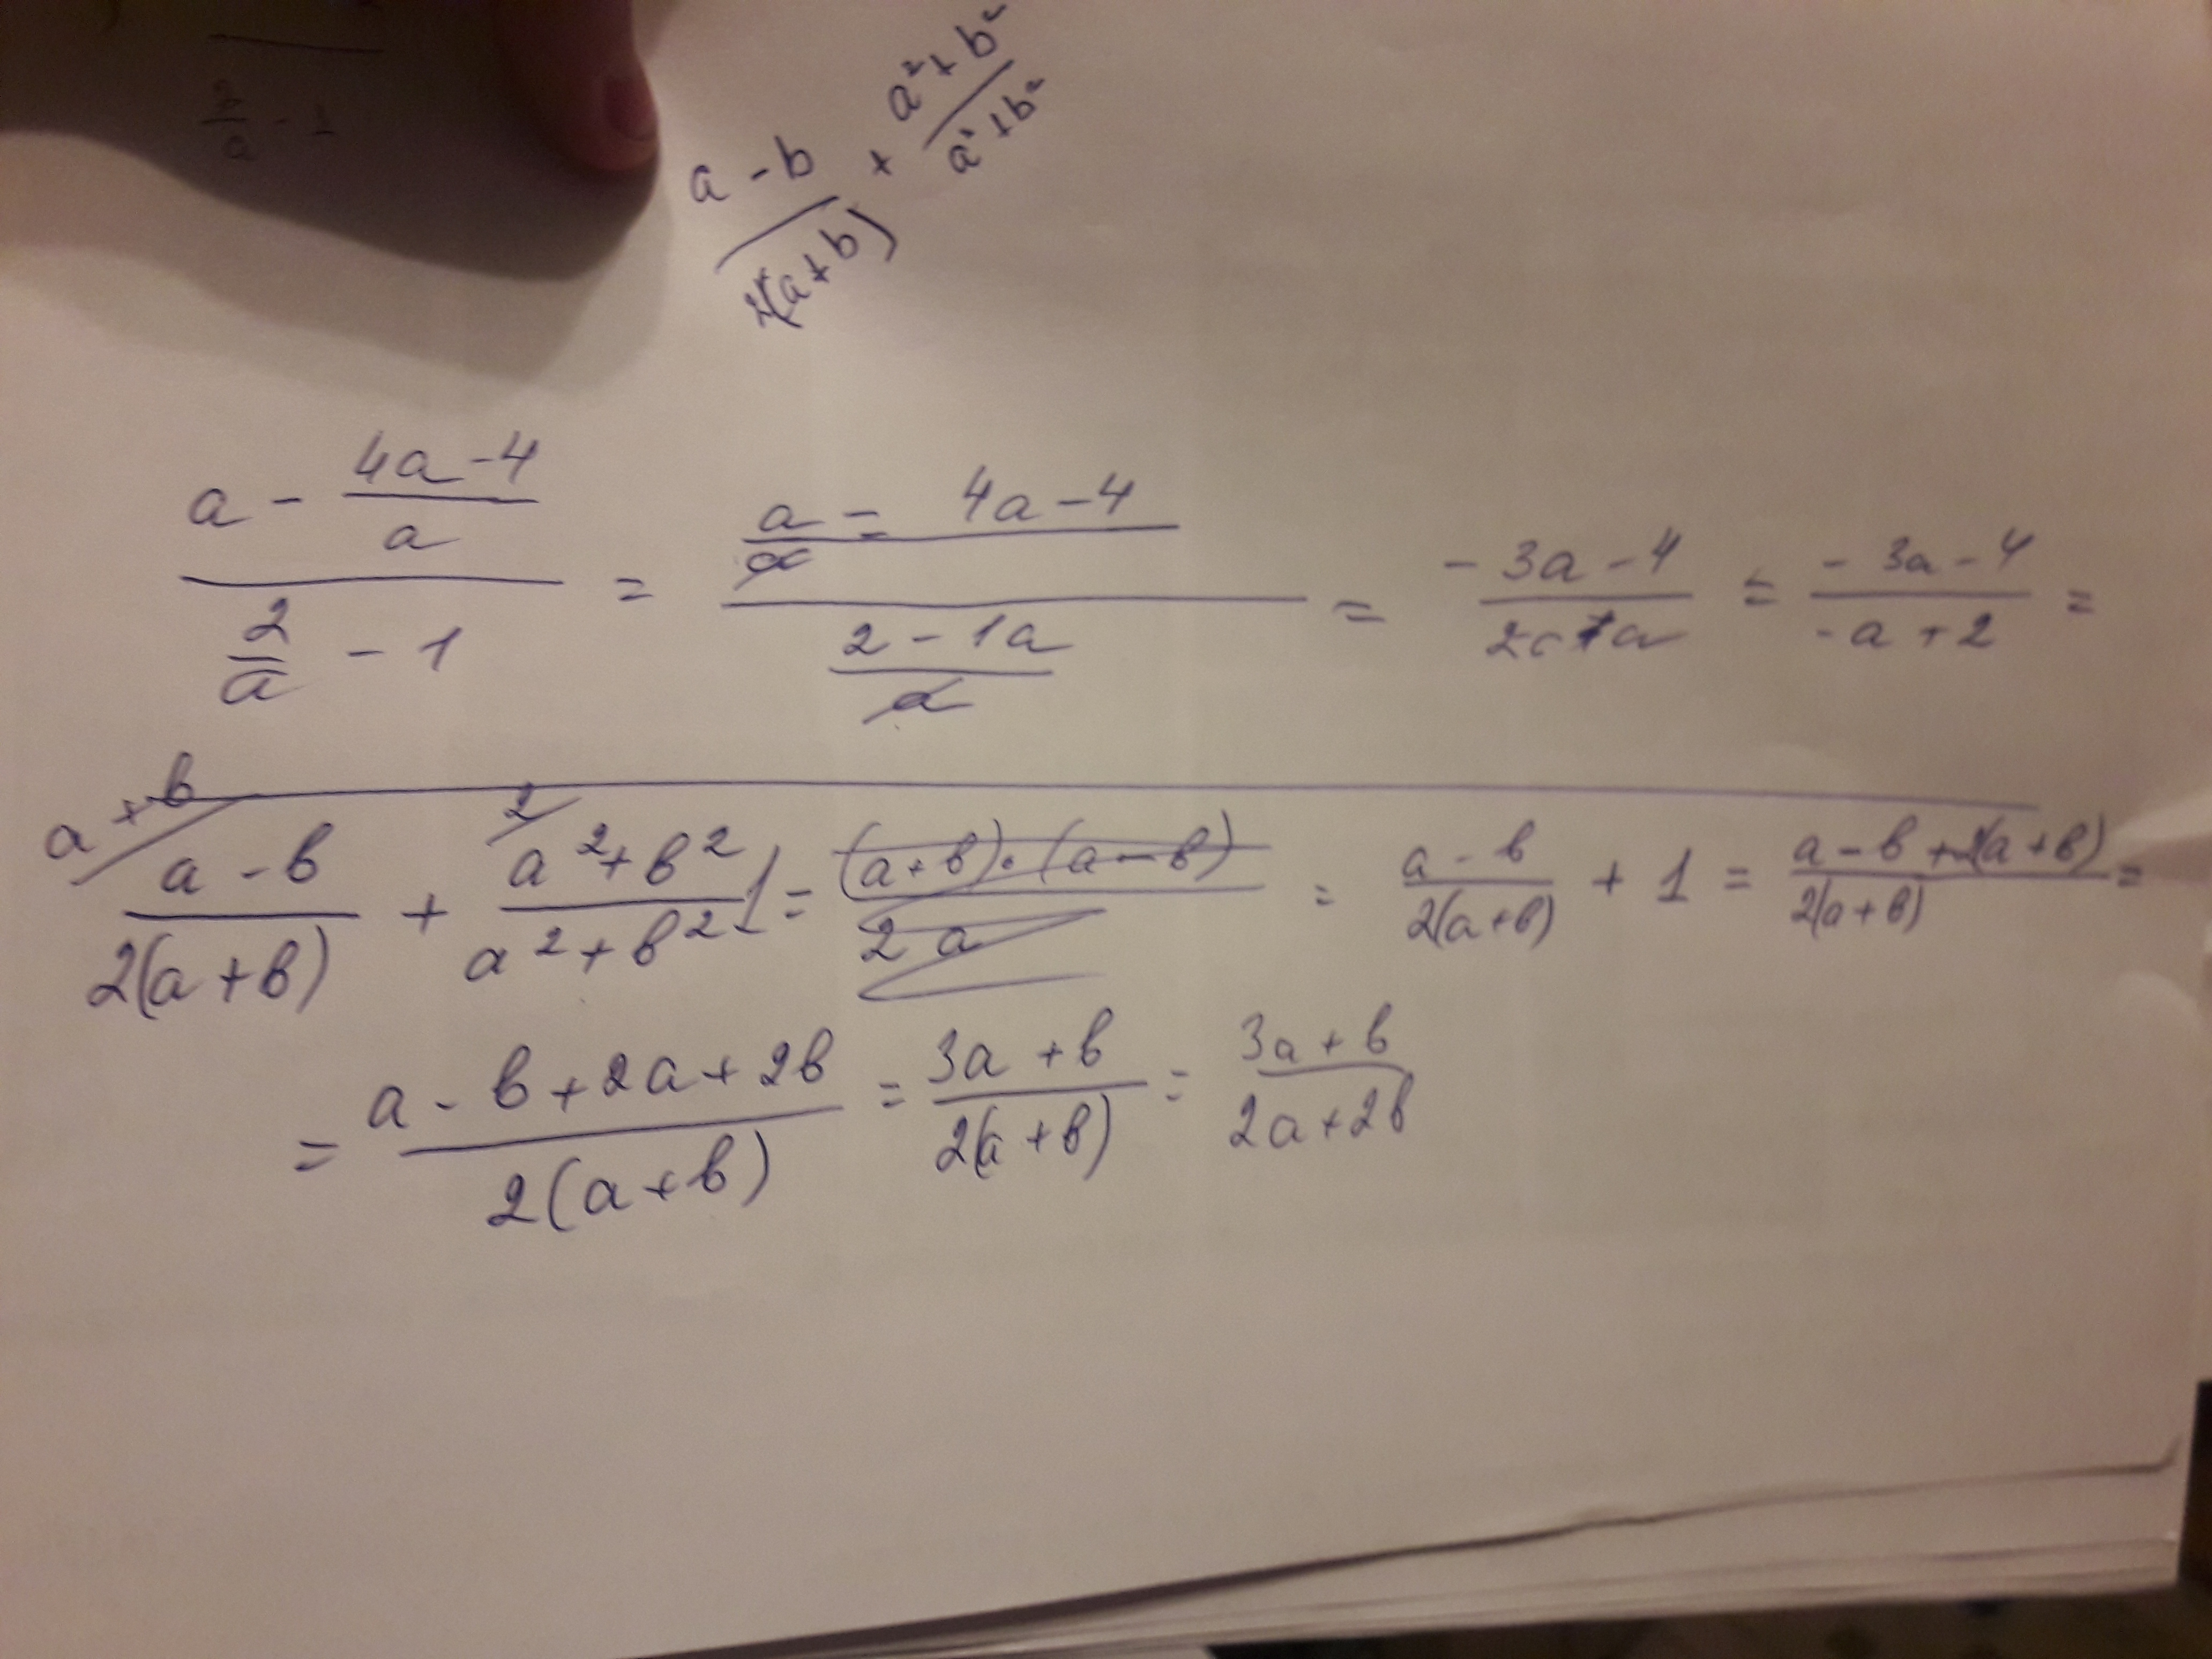 2/a - 1
(a - b)/(2(a + b)) + (a² + b²)/(a² + b²)
(a - (4a - 4)/a)/(2/a - 1) = ((a - 4a - 4)/a)/((2 - 1a)/a) = (-3a - 4)/(2 - 1a) = (-3a - 4)/(-a + 2) =
a + b 2
(a - b)/(2(a + b)) + (a² + b²)/(a² + b²) 1 = ((a + b) · (a - b))/(2a) = (a - b)/(2(a + b)) + 1 = (a - b + 2(a + b))/(2(a + b)) =
= (a - b + 2a + 2b)/(2(a + b)) = (3a + b)/(2(a + b)) = (3a + b)/(2a + 2b)